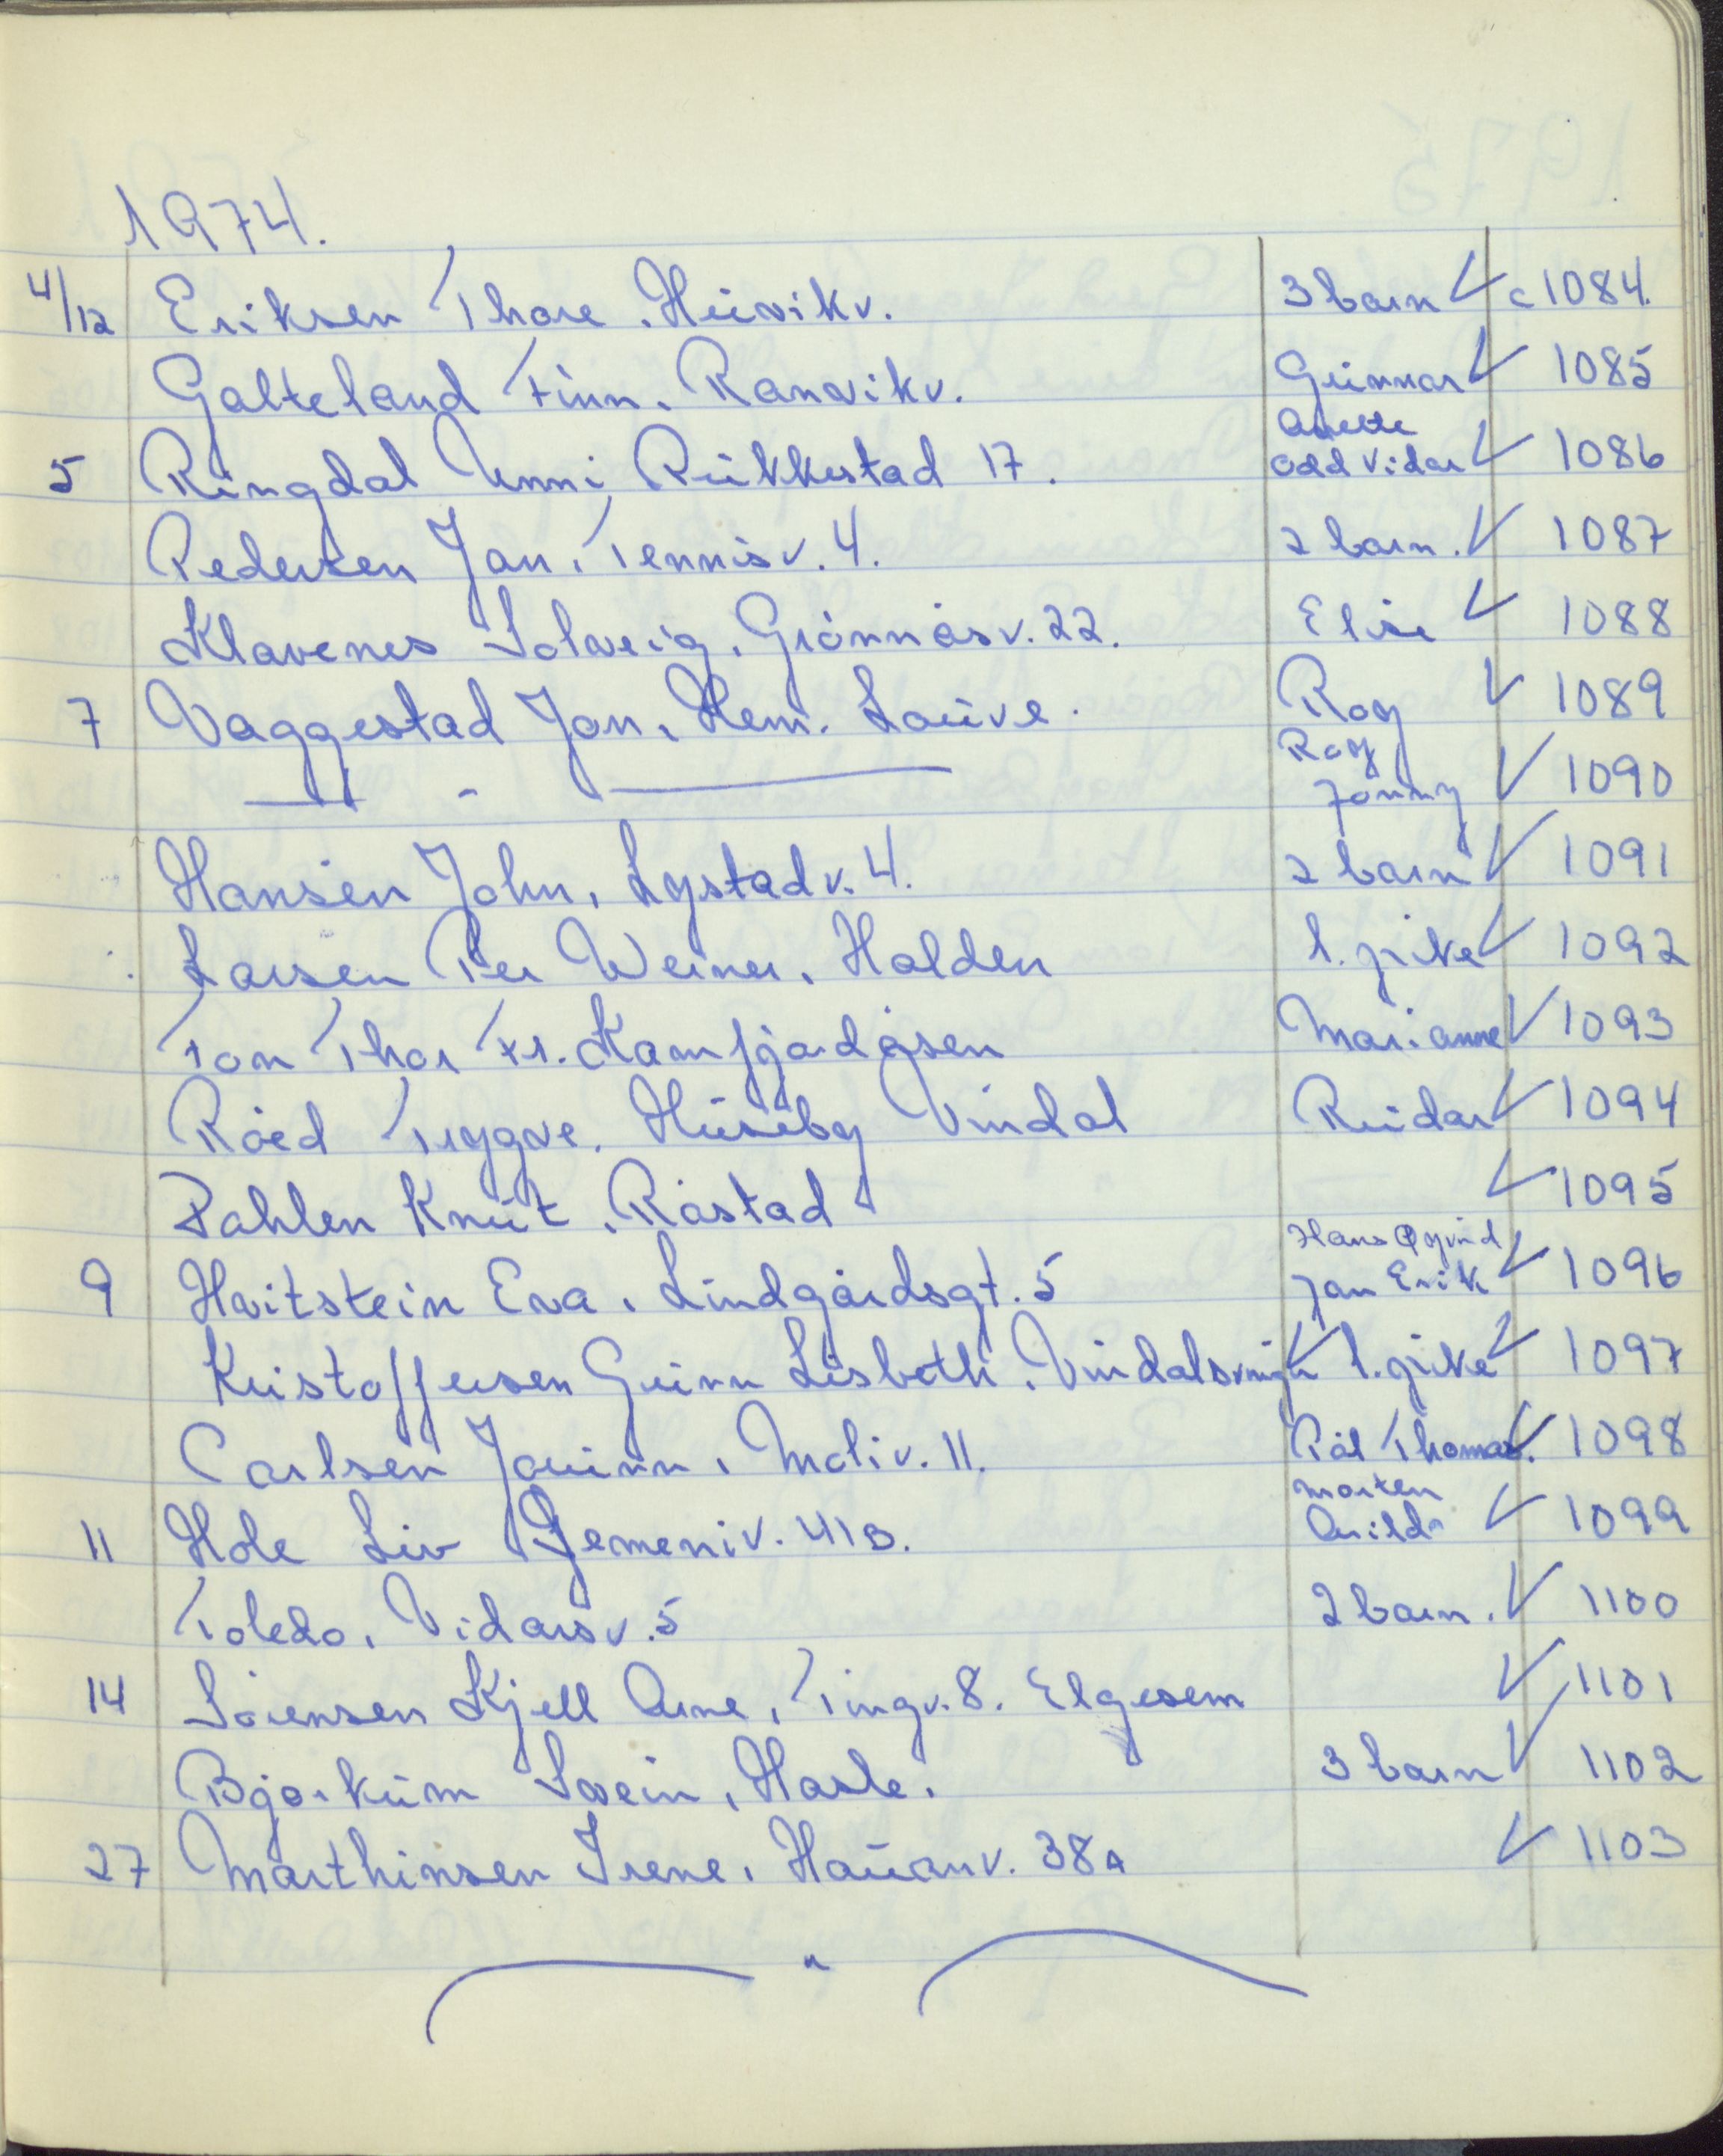 1974.
4/12 Eriksen Thore. Huvikv. 3 barn ✓ c 1084.
Galteland Finn. Ranvikv. Gunnar ✓ 1085
Anette
5 Ringdal Unni, Rukkestad 17. Odd Vidar ✓ 1086
Pedersen Jan, Tennisv. 4. 2 barn. ✓ 1087
Klavenes Solveig. Grönnåsv. 22. Elise ✓ 1088
7 Vaggestad Jon, Hem. Lauve. Roy ✓ 1089
Roy
— " — Jonny ✓ 1090
Hansen John, Lystadv. 4. 2 barn ✓ 1091
Larsen Per Werner, Halden 1. pike ✓ 1092
Tom Thor Fr. Kamfjordjsen Marianne ✓ 1093
Röed Tryggve. Huseby Vindal Reidar ✓ 1094
Pahlen Knut, Råstad ✓ 1095
Hans Øyvind
9 Hvitstein Eva, Lindgårdsgt. 5 Jan Erik ✓ 1096
Kristoffersen Gunn Lisbeth. ✓ 1. pike ✓ 1097
Carlsen Jouinn, Moliv. 11. Pål Thomas. ✓ 1098
Morten
11 Hole Liv Gemeniv. 41B. Arild ✓ 1099
Toledo, Vidarsv. 5 2 barn. ✓ 1100
14 Sörensen Kjell Arne, Tingv. 8. Elgesem ✓ 1101
Bjørkum Svein, Hasle. 3 barn ✓ 1102
27 Marthinsen Irene, Hauanv. 38A ✓ 1103
— " —